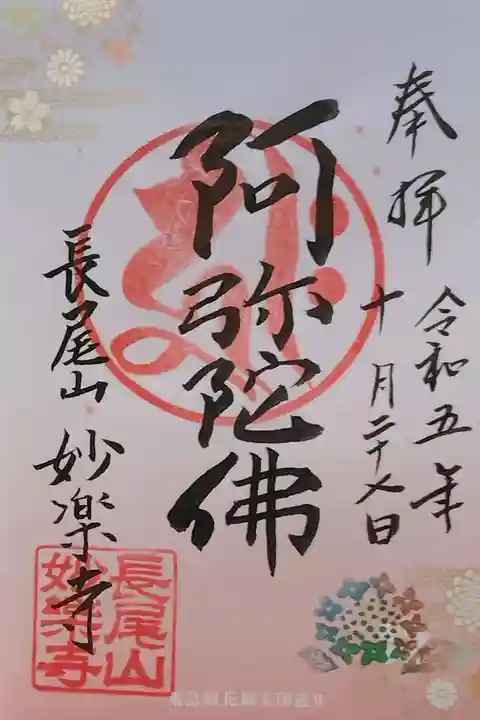 奉拝
令和五年
十月二十八日
阿弥陀佛
長尾山
妙楽寺
長尾山
妙楽寺